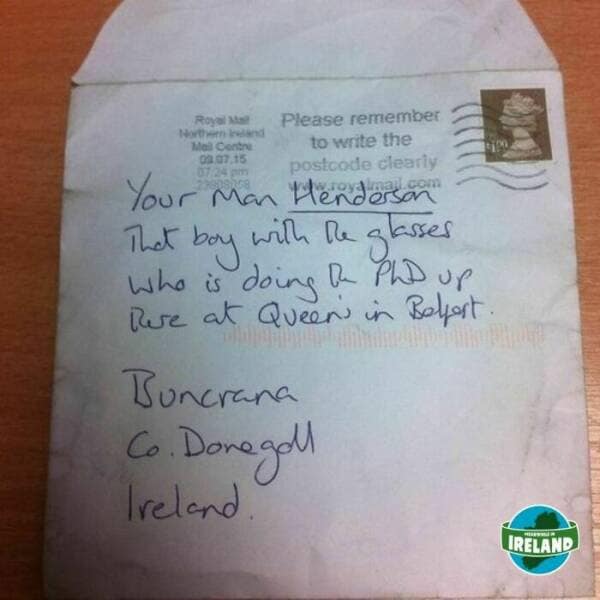 Royal Mail
Northern Ireland
Mail Centre
09.07.15
07.24 pm
Please remember
to write the
postcode clearly
www.royalmail.com
Your Man Henderson
That boy with the glasses
who is doing the PhD up
here at Queen's in Belfast.
Buncrana
Co. Donegall
Ireland.
IRELAND